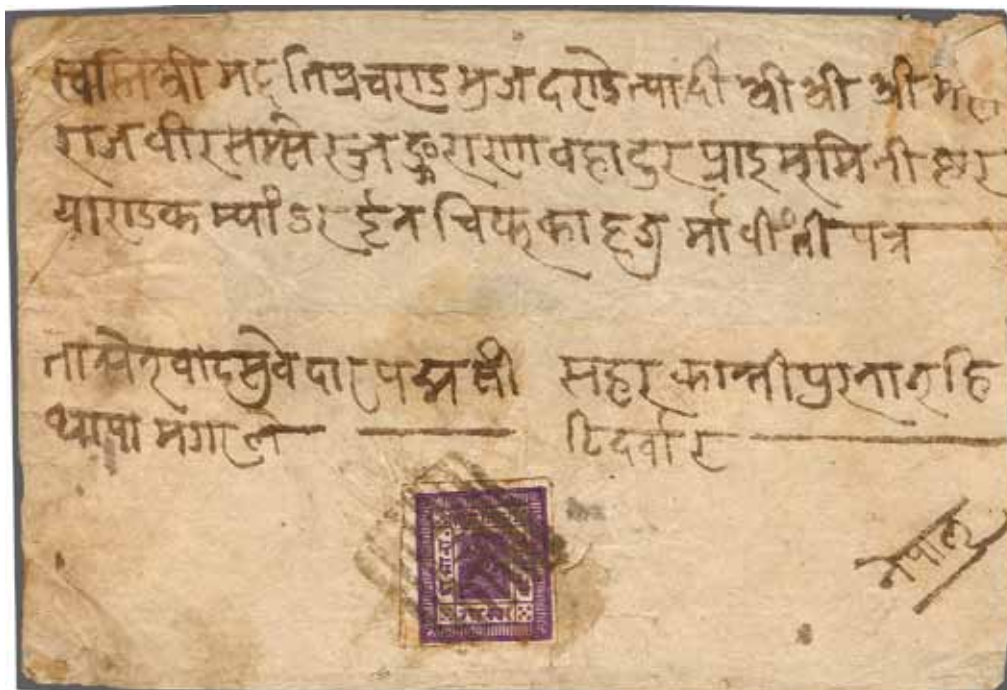 स्वस्तिश्री मदतिप्रचण्ड भुजदण्डेत्यादी श्री श्री श्री महा
राज वीर सम्सेर जङ्ग राणा वहादुर प्राइम् मिनीष्टर
याण्ड कम्याँडर ईन चिफ् का हजुर्मा वींती पत्र
सुवेदार पद्म सीं सहर कान्तीपुर
थापा मगरले दर्वार
नेपाल